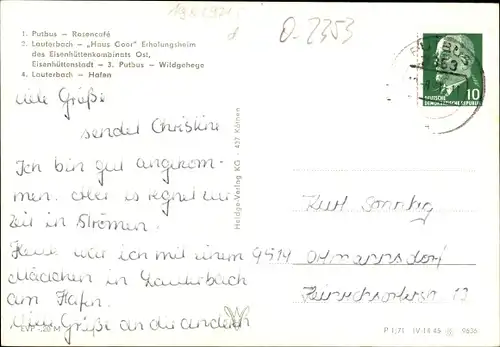 19.8.1971
O-2353
1. Putbus – Rosencafé
2. Lauterbach – „Haus Goor" Erholungsheim
des Eisenhüttenkombinats Ost,
Eisenhüttenstadt – 3. Putbus – Wildgehege
4. Lauterbach – Hafen
PUTBUS
2353
10
DEUTSCHE
DEMOKRATISCHE REPUBLIK
Viele Grüße
sendet Christine
Ich bin gut angekom-
men. Aber es regnet zur
Zeit in Strömen.
Heute war ich mit einem
Mädchen in Lauterbach
am Hafen.
Viele Grüße an die anderen
Heldge-Verlag KG · 437 Köthen
Kurt Sonntag
9514 Ortmannsdorf
13
EVP -,20 M
P 1/71 IV-14-45 9636